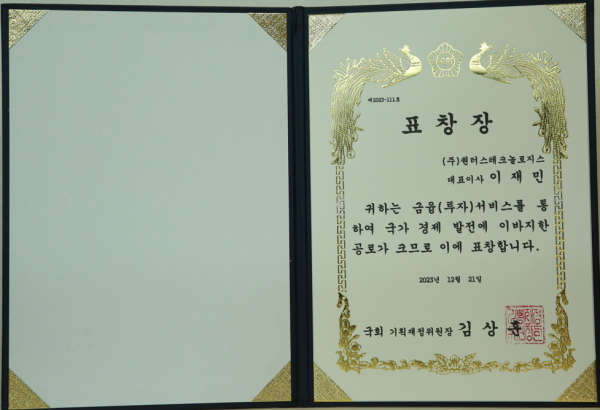 제2023-111호
표창장
(주)윈터스테크놀로지스
대표이사 이재민
귀하는 금융(투자)서비스를 통
하여 국가 경제 발전에 이바지한
공로가 크므로 이에 표창합니다.
2023년 12월 21일
국회 기획재정위원장 김상훈